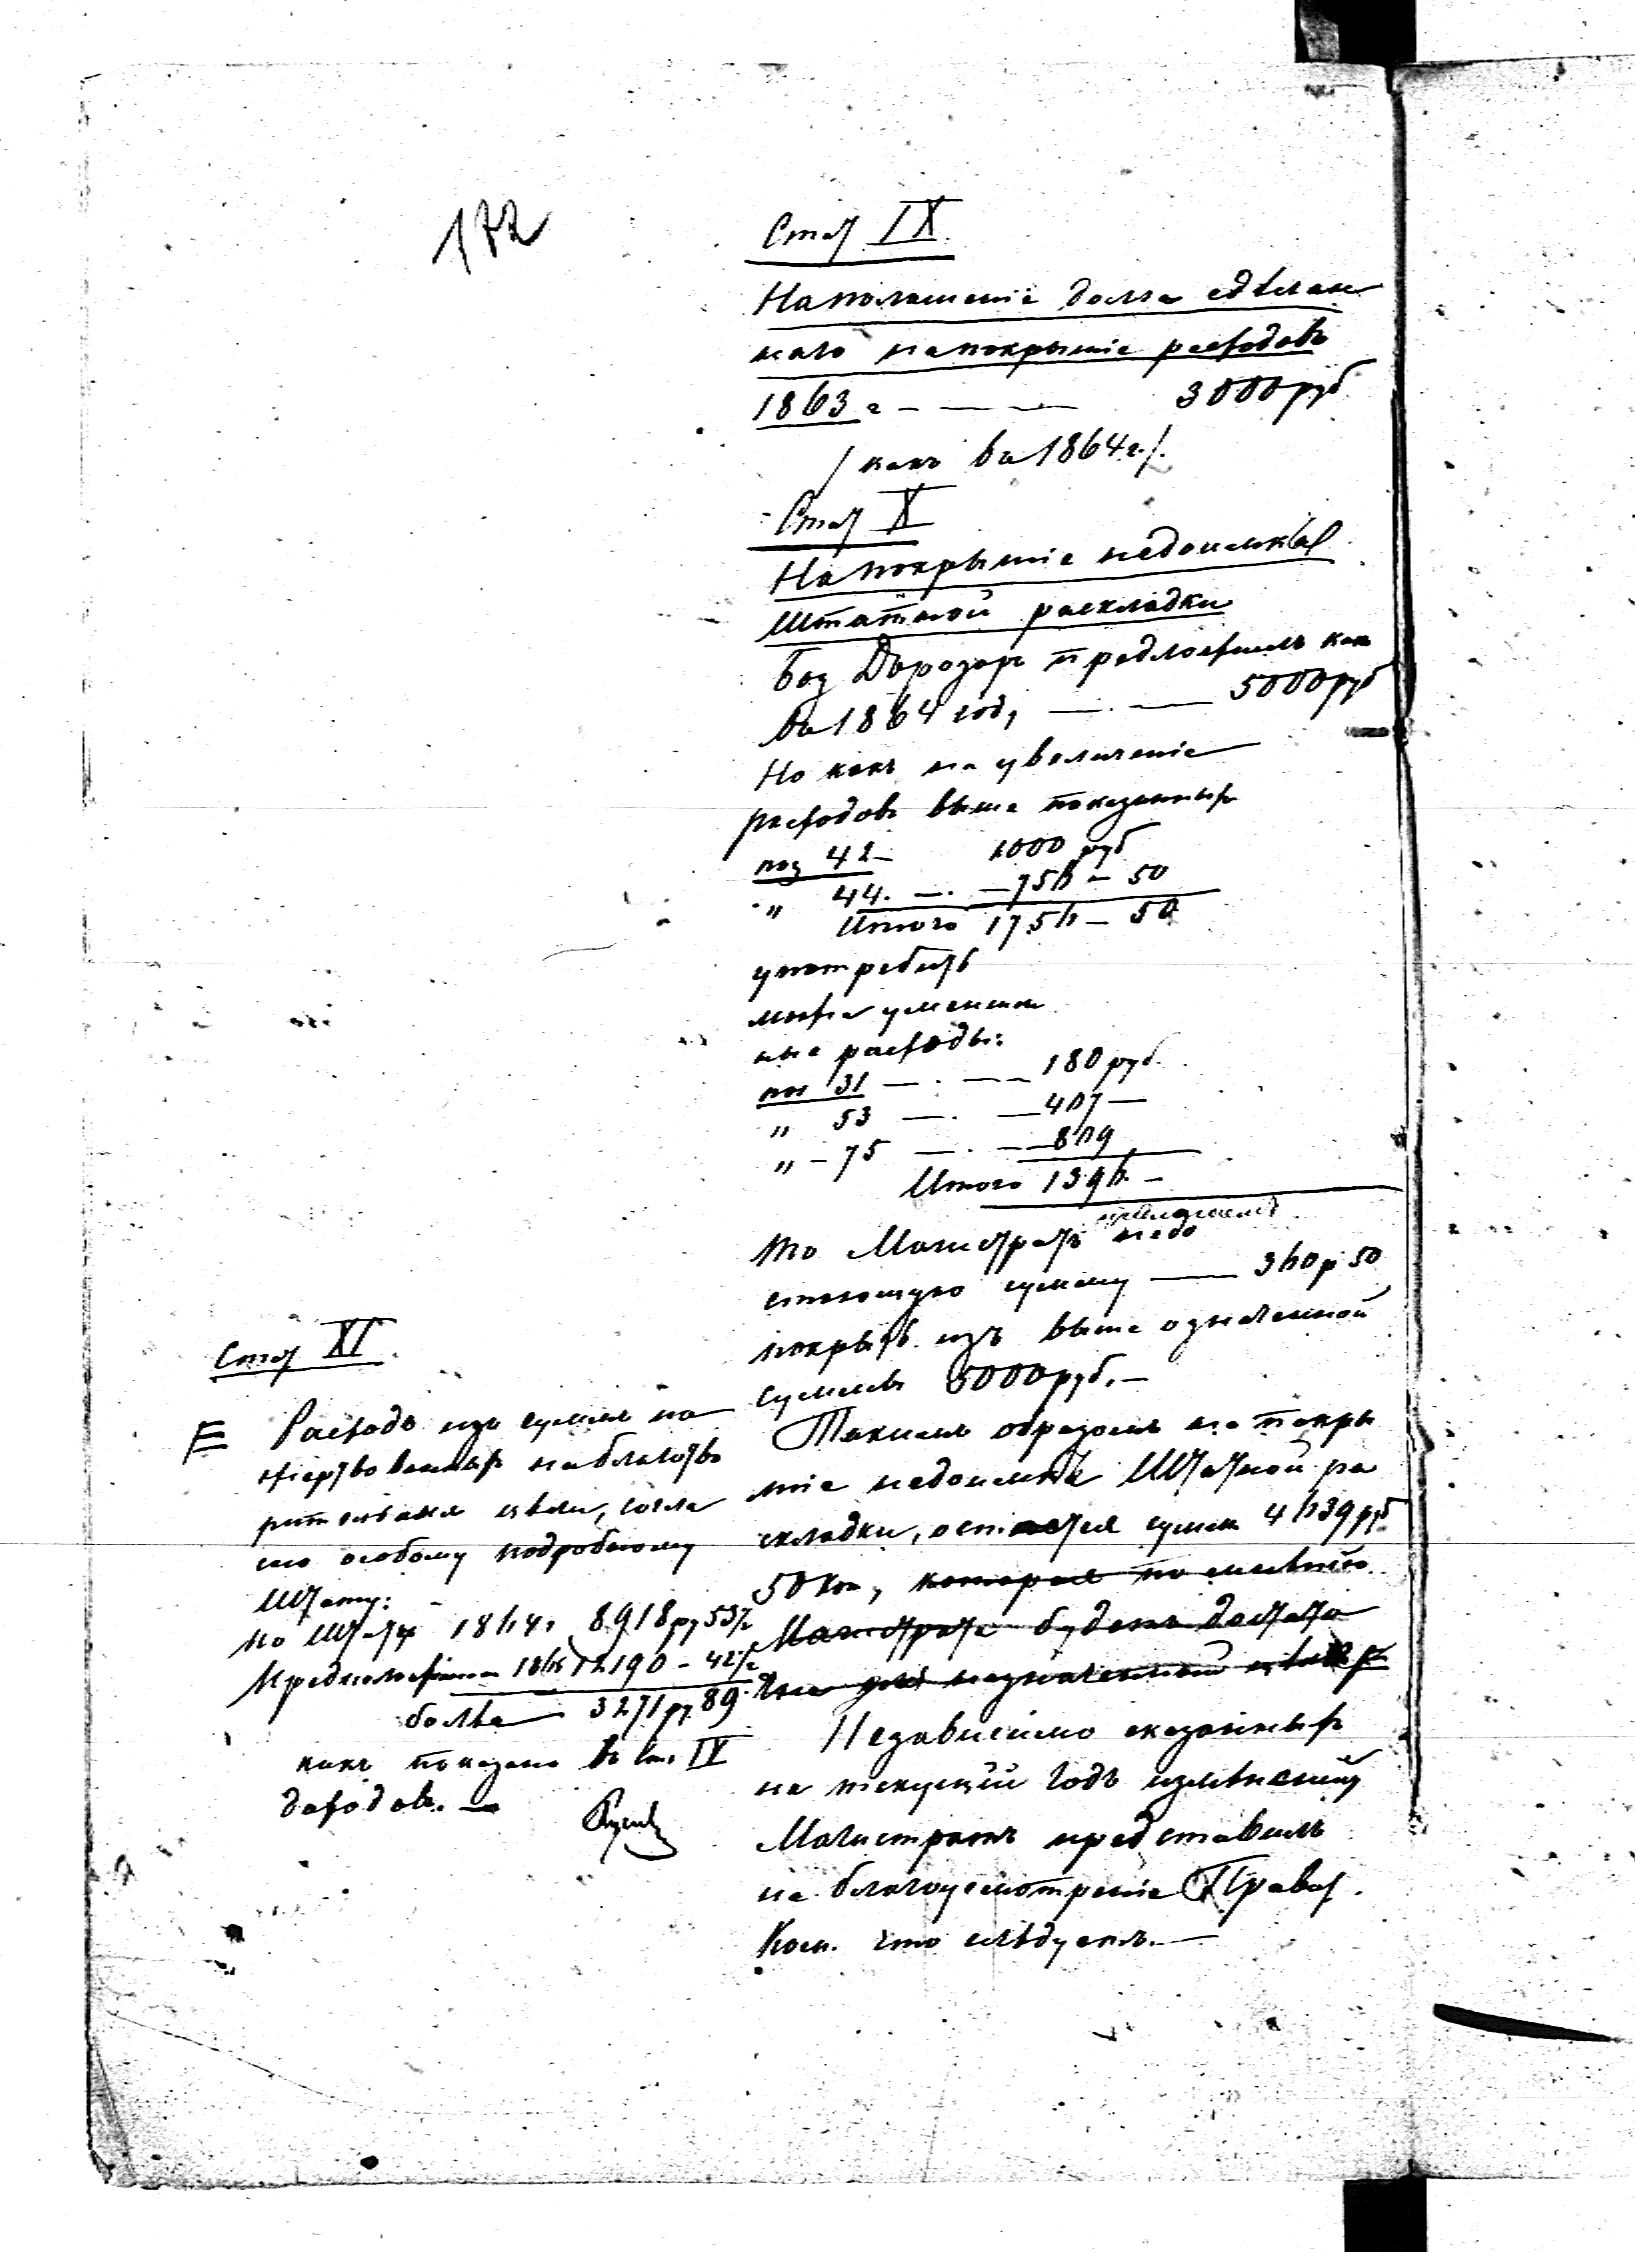 172
Стат IX.
На погашеніе долга сдѣлан
наго на покрытіе расходовъ
1863 г. — — — 3000 руб
/ какъ въ 1864 г./.
Стат X
На покрытіе недоимкѣ
Штатной раскладки
предложилъ какъ
въ 1864 год, — . — 5000 руб
Но какъ на увеличеніе
расходовъ выше показанныхъ
поз 42 — 1000 руб
" 44. — . — 756 — 50
Итого 1756 — 50
употребить
можно уменьшен
ные расходы:
поз 31 — . — 180 руб.
" 53 — . — 407 —
" — 75 — . — 809
Итого 1396. —
то Магистратъ недо
стающую сумму — 360 р 50
покрыть изъ выше означенной
суммы 5000 руб. —
Такимъ образомъ на покры
тіе недоимкѣ Штатной ра
складки, остается сумма 4639 руб
50 коп, которая по мнѣнію
Магистрата будетъ достато
чна для назначенной цѣли
Независимо сказанныхъ
на текущій годъ измѣненій
Магистратъ представилъ
на благоусмотреніе Правит.
Ком. что слѣдуетъ. —
Стат XI.
Расходъ изъ суммъ по
жертвованныхъ на благотво
рительныя цѣли, согла
сно особому подробному
Штату:
По Штату 1864 г. 8918 ру 53½
Предположено 1865 12190 — 42½
болѣе 3271 ру 89.
какъ показано въ ст. IV
доходовъ. —